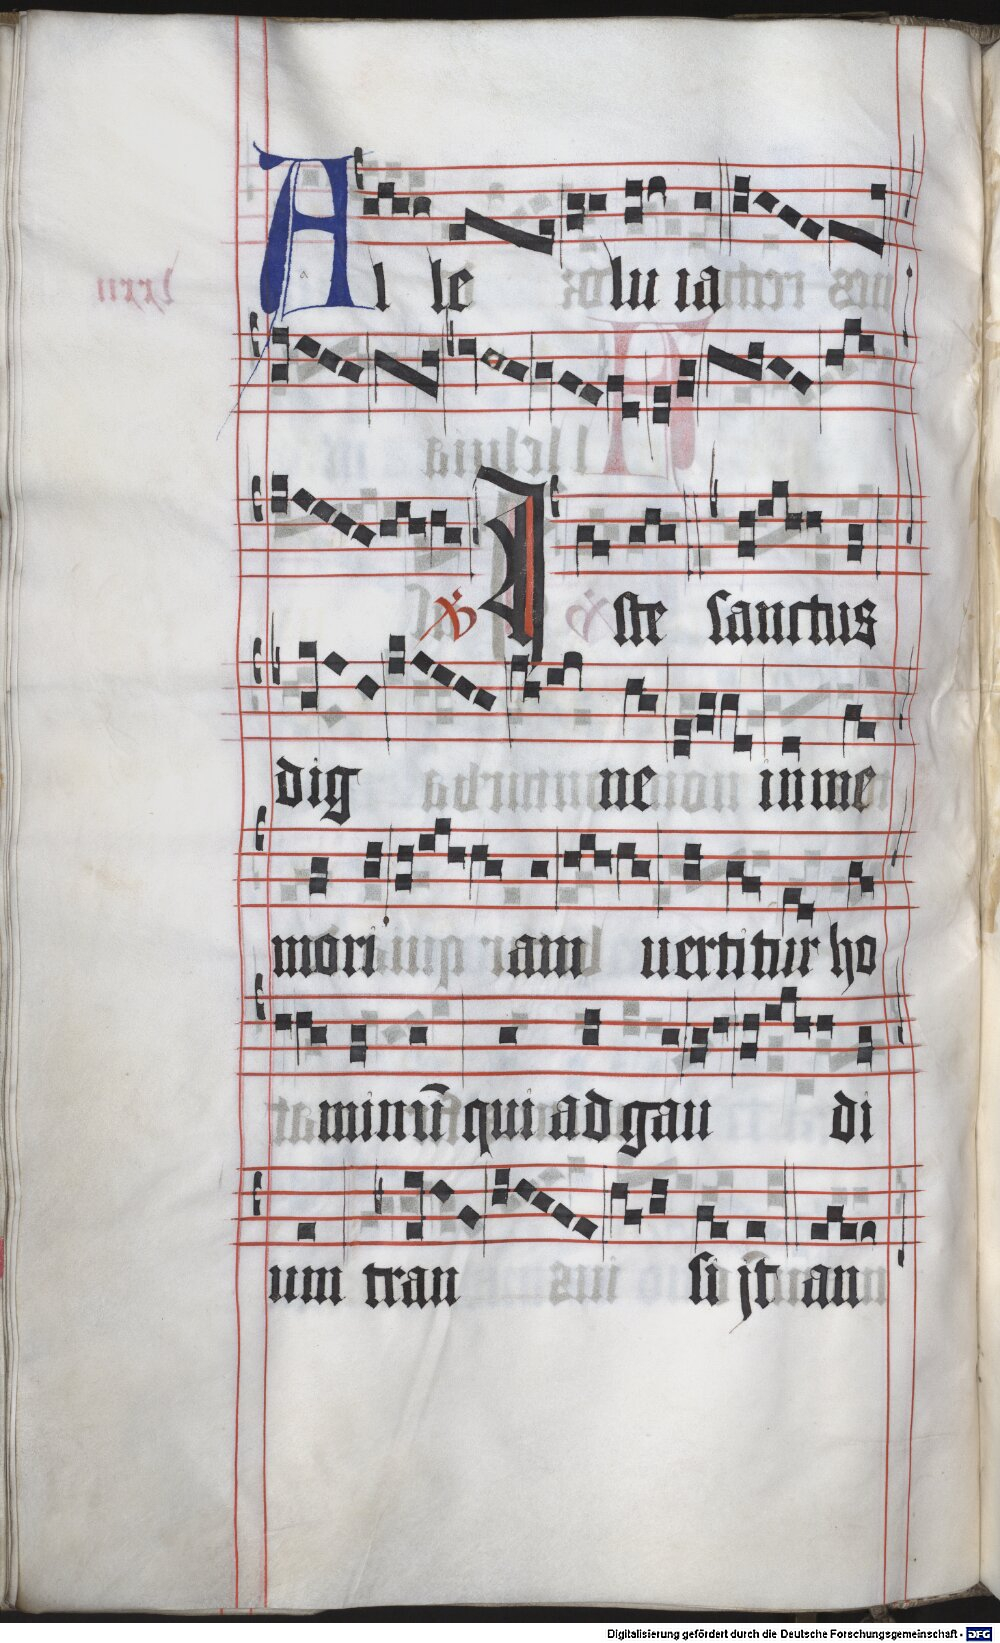 Al le lu ia
℣ Iste sanctus
dig ne in me
mori am uertitur ho
minū qui ad gau di
um tran si jt an
Digitalisierung gefördert durch die Deutsche Forschungsgemeinschaft - DFG